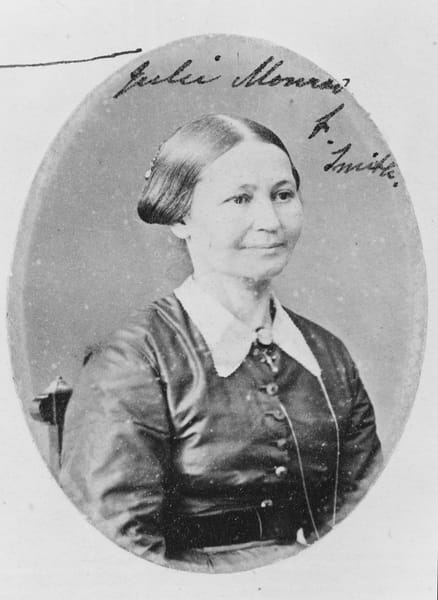 Julie Monroe
F.
Smith.